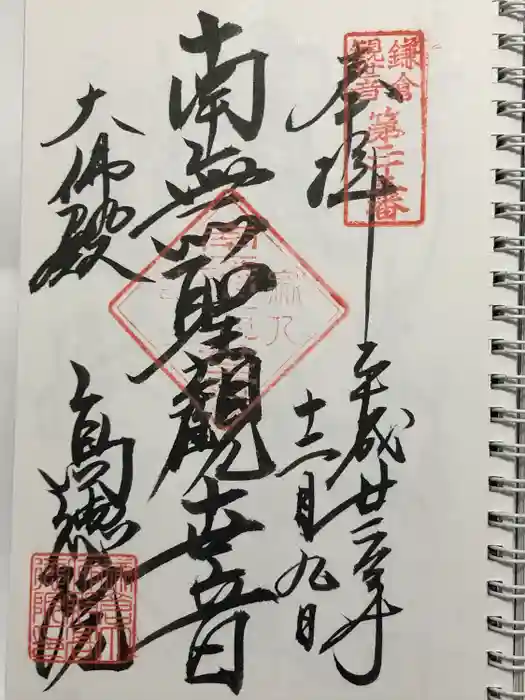 鎌倉
観世音
第二十三番
奉拝
平成廿二年
十二月九日
南無聖觀世音
大佛殿
高德院